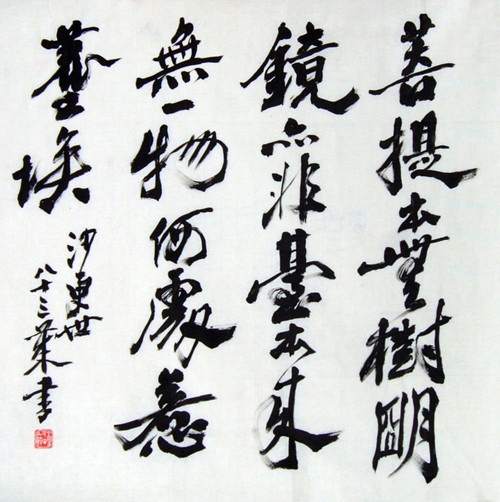 菩提本無樹明
鏡亦非臺本来
無一物何處惹
塵埃
沙更世
八十三書